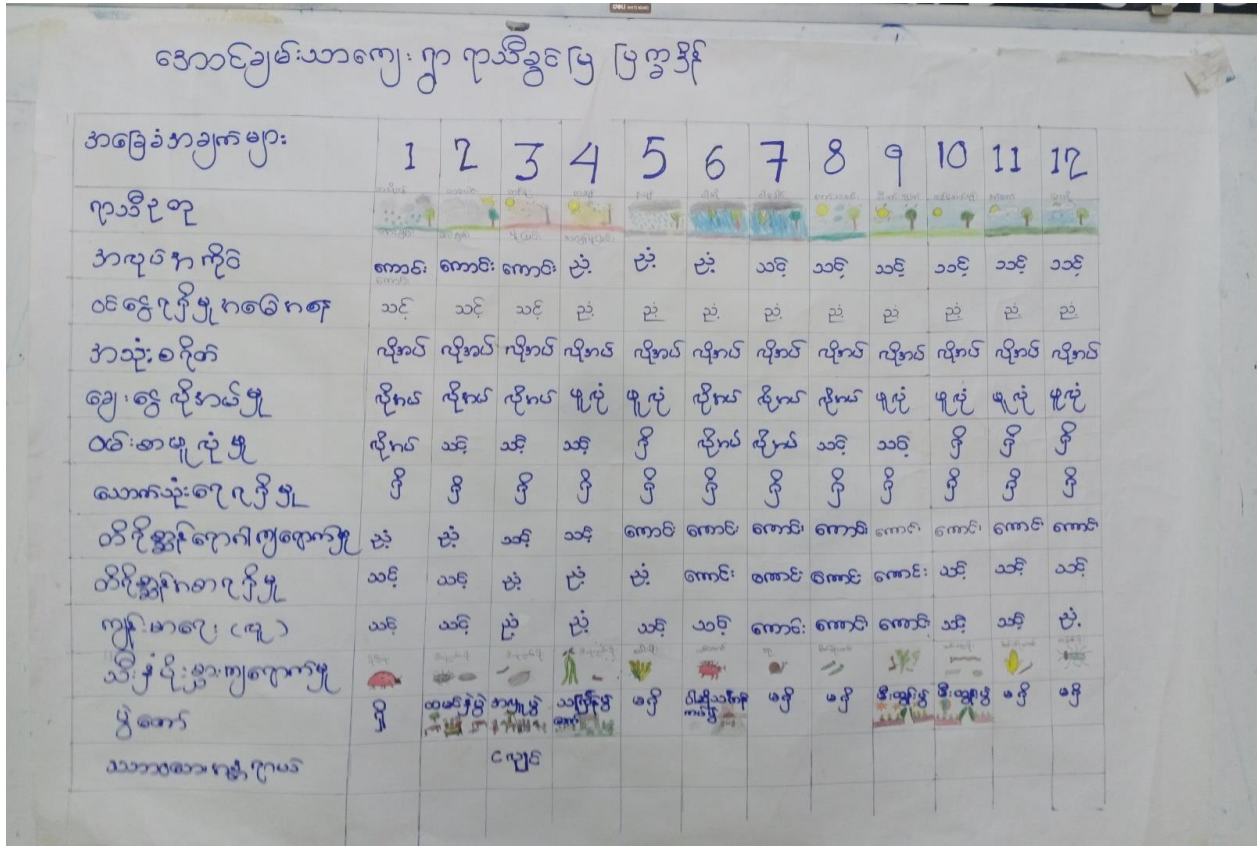 အောင်ချမ်းသာကျေးရွာ ရာသီခွင်ပြ ပြက္ခဒိန်
အခြေခံအချက်များ 1 2 3 4 5 6 7 8 9 10 11 12
ရာသီဥတု
အလုပ်အကိုင် ကောင်း ကောင်း ကောင်း ညံ့ ညံ့ ညံ့ သင့် သင့် သင့် သင့် သင့် သင့်
ဝင်ငွေရရှိမှုအခြေအနေ သင့် သင့် သင့် ညံ့ ညံ့ ညံ့ ညံ့ ညံ့ ညံ့ ညံ့ ညံ့ ညံ့
အသုံးစရိတ် လိုအပ် လိုအပ် လိုအပ် လိုအပ် လိုအပ် လိုအပ် လိုအပ် လိုအပ် လိုအပ် လိုအပ် လိုအပ် လိုအပ်
ချေးငွေလိုအပ်မှု လိုအပ် လိုအပ် လိုအပ် ဖူလုံ ဖူလုံ လိုအပ် လိုအပ် လိုအပ် ဖူလုံ ဖူလုံ ဖူလုံ ဖူလုံ
ဝမ်းစာဖူလုံမှု လိုအပ် သင့် သင့် သင့် ရှိ လိုအပ် လိုအပ် သင့် သင့် ရှိ ရှိ ရှိ
သောက်သုံးရေရရှိမှု ရှိ ရှိ ရှိ ရှိ ရှိ ရှိ ရှိ ရှိ ရှိ ရှိ ရှိ ရှိ
တိရိစ္ဆာန်ရောဂါကျရောက်မှု ညံ့ ညံ့ သင့် သင့် ကောင်း ကောင်း ကောင်း ကောင်း ကောင်း ကောင်း ကောင်း ကောင်း
တိရိစ္ဆာန်အစာရရှိမှု သင့် သင့် ညံ့ ညံ့ ညံ့ ကောင်း ကောင်း ကောင်း ကောင်း သင့် သင့် သင့်
ကျန်းမာရေး (လူ) သင့် သင့် ညံ့ ညံ့ သင့် သင့် ကောင်း ကောင်း ကောင်း သင့် သင့် ညံ့
သီးနှံပိုးမွှားကျရောက်မှု
ပွဲတော် ရှိ ထမနဲပွဲ အလှူပွဲ သင်္ကြန်ပွဲ မရှိ ဝါဆိုသင်္ကန်း ကပ်ပွဲ မရှိ မရှိ မီးထွန်းပွဲ မီးထွန်းပွဲ မရှိ မရှိ
သဘာဝဘေးအန္တရာယ် ငလျင်